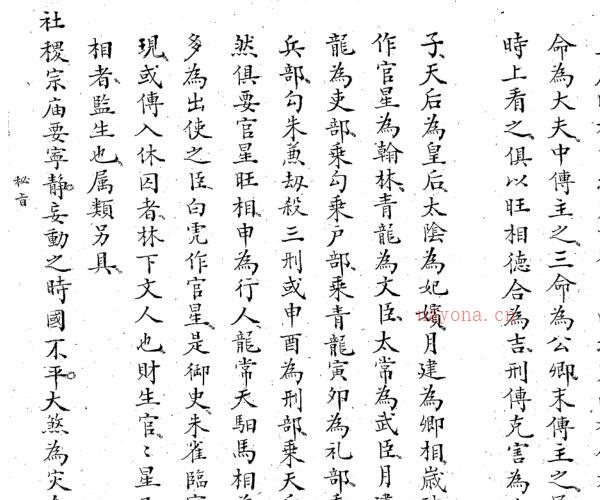 命為大夫中傳主之三命為公卿末傳主之
時上看之俱以旺相德合為吉刑傳克害為
子天后為皇后太陰為妃嬪月建為卿相歲
作官星為翰林青龍為文臣太常為武臣月建
龍為吏部乘勾乘戶部乘青龍寅夘為礼部乘
兵部勾朱兼刼殺三刑或申酉為刑部乘天
然俱要官星旺相申為行人龍常天馹馬相為
多為出使之臣白虎作官星是御史朱雀臨官
現或傳入休囚者林下文人也財生官〻星
相者監生也属類另具
社稷宗庙要寧静妄動之時國不平大煞為灾
秘旨
uvyona.cn